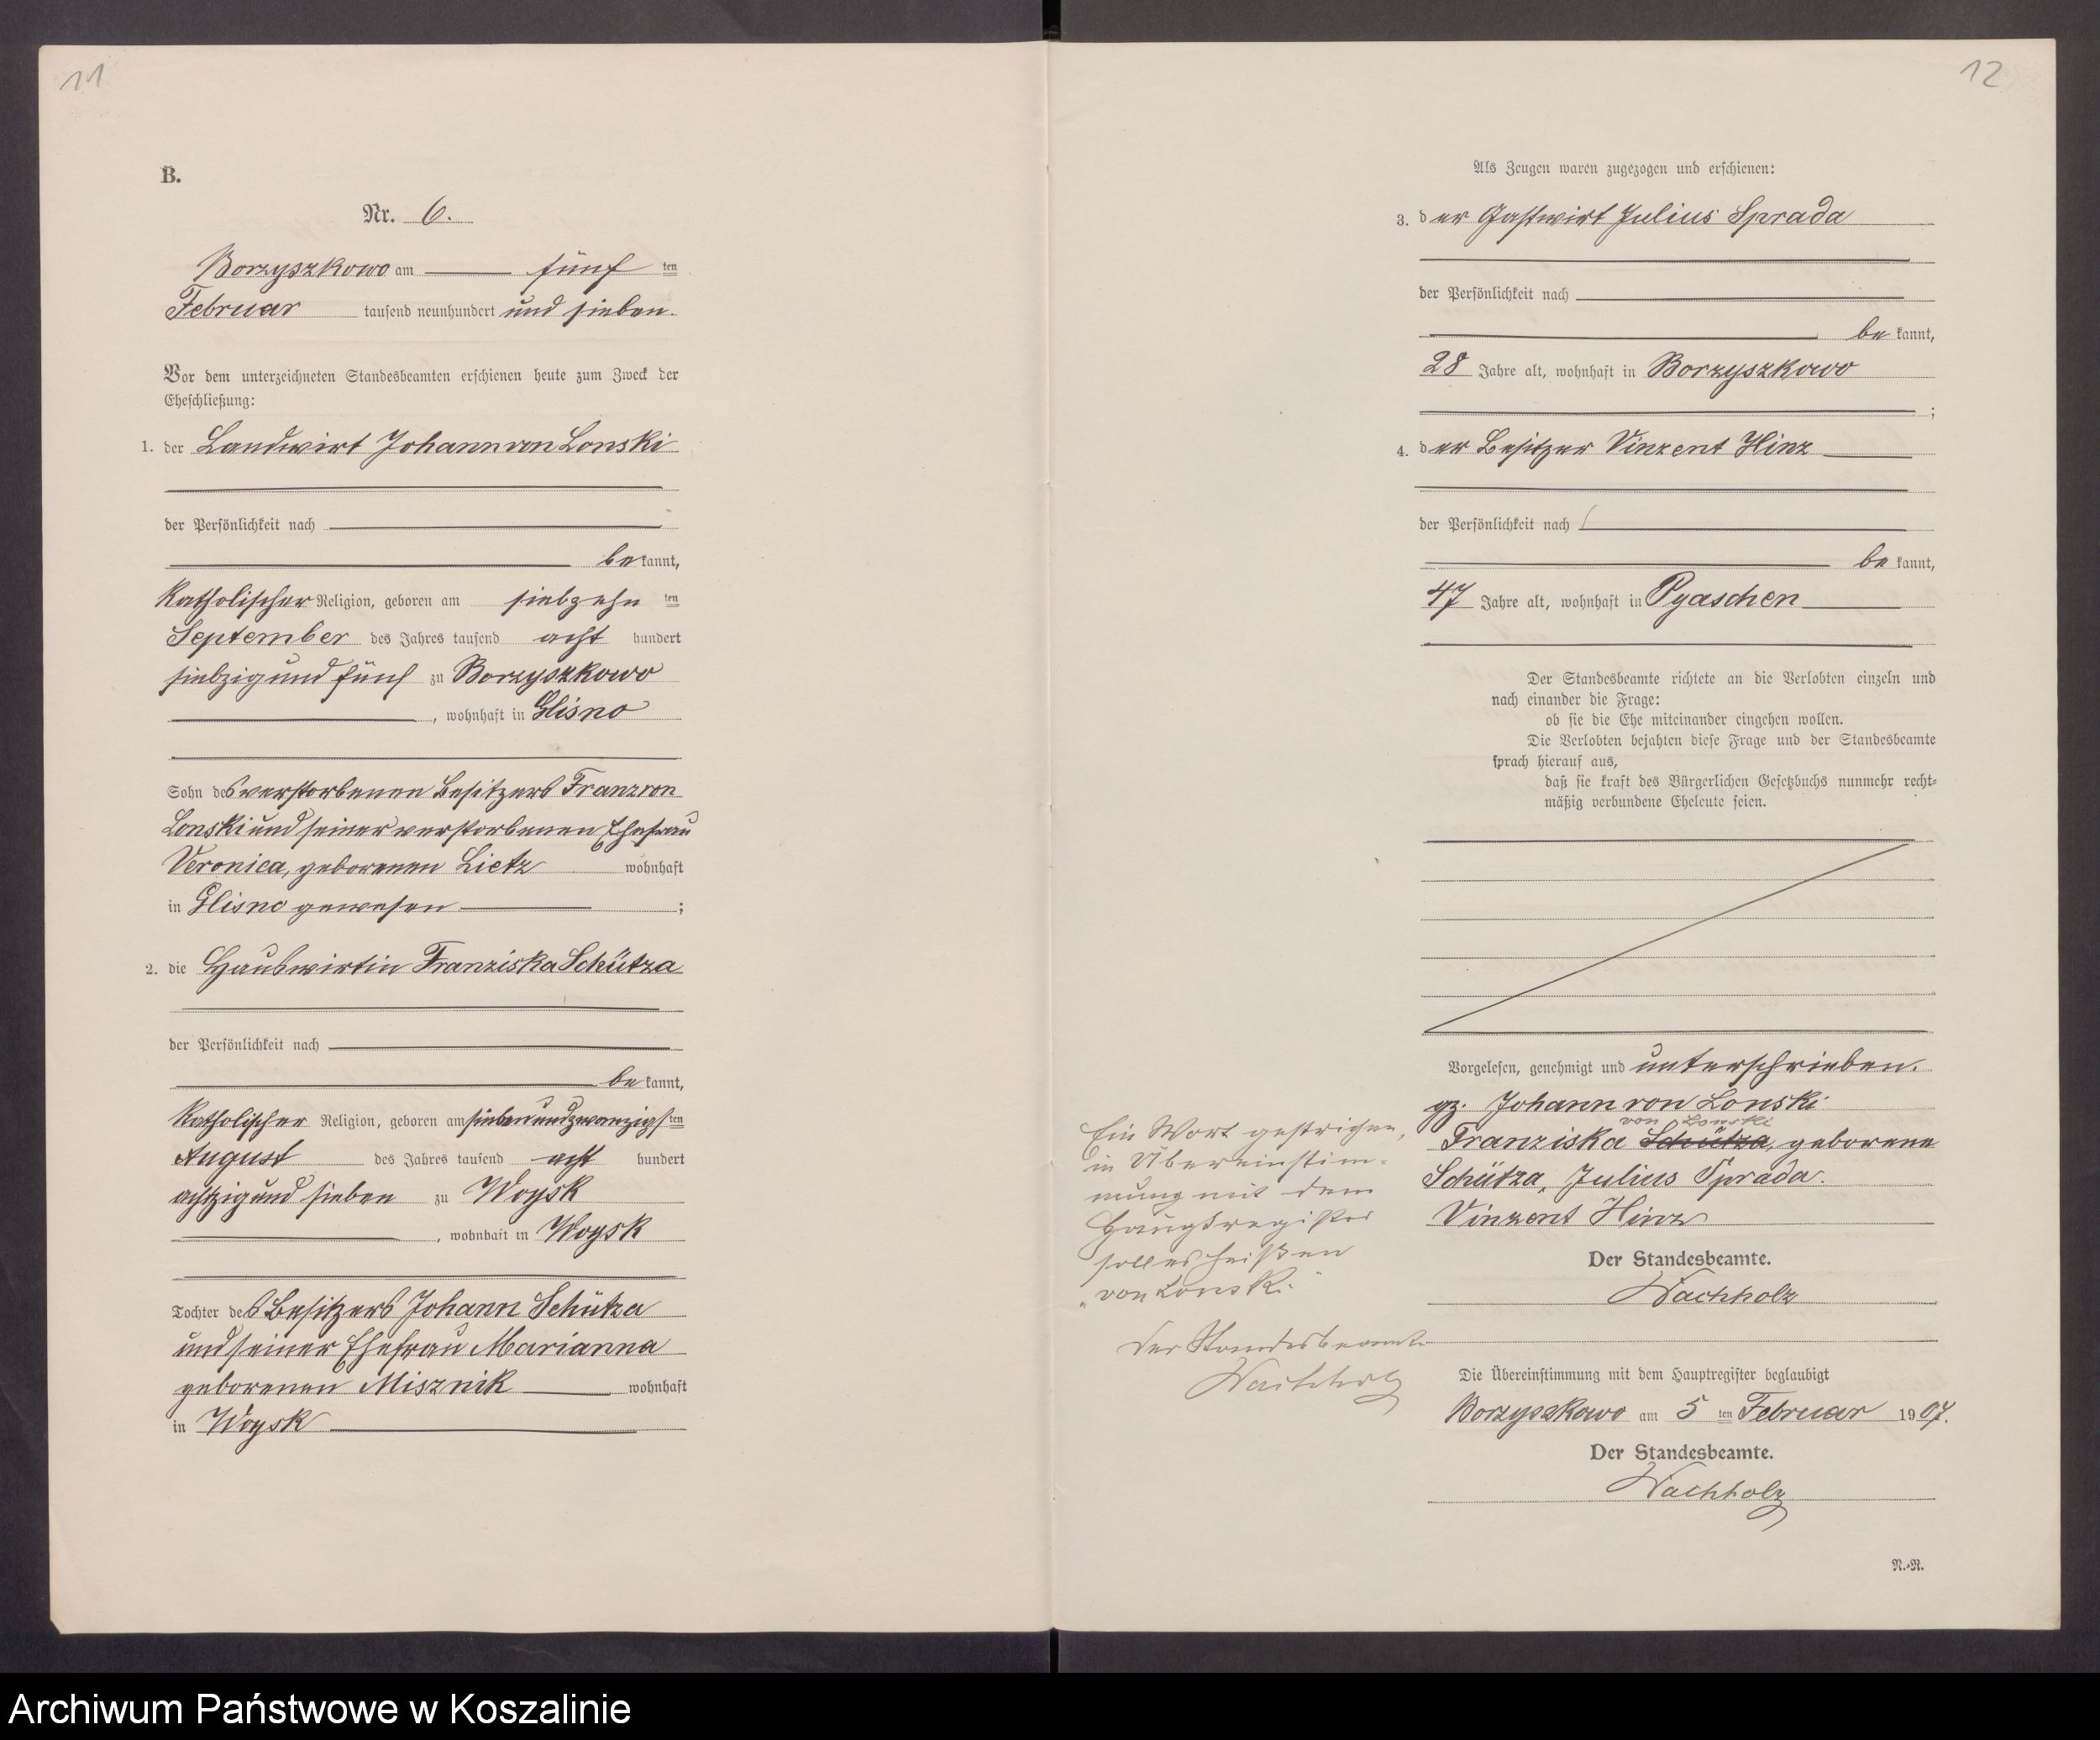 11
B.
Nr. 6.
Borzyszkowo am fünf ten
Februar tausend neunhundert und sieben.
Vor dem unterzeichneten Standesbeamten erschienen heute zum Zweck der
Eheschließung:
1. der Landwirt Johann von Lonski
der Persönlichkeit nach
be kannt,
katholischer Religion, geboren am siebzehn ten
September des Jahres tausend acht hundert
siebzig und fünf zu Borzyszkowo
, wohnhaft in Glisno
Sohn des verstorbenen Besitzers Franz von
Lonski und seiner verstorbenen Ehefrau
Veronica, geborenen Lietz wohnhaft
in Glisno gewesen ;
2. die Hauswirtin Franziska Schütza
der Persönlichkeit nach
be kannt,
katholischer Religion, geboren am siebenundzwanzigsten
August des Jahres tausend acht hundert
achtzig und sieben zu Woysk
, wohnhaft in Woysk
Tochter des Besitzers Johann Schütza
und seiner Ehefrau Marianna
geborenen Misznik wohnhaft
in Woysk
12
Als Zeugen waren zugezogen und erschienen:
3. der Gastwirt Julius Sprada
der Persönlichkeit nach
be kannt,
28 Jahre alt, wohnhaft in Borzyszkowo
;
4. der Besitzer Vinzent Hinz
der Persönlichkeit nach
be kannt,
47 Jahre alt, wohnhaft in Pyaschen
Der Standesbeamte richtete an die Verlobten einzeln und
nach einander die Frage:
ob sie die Ehe miteinander eingehen wollen.
Die Verlobten bejahten diese Frage und der Standesbeamte
sprach hierauf aus,
daß sie kraft des Bürgerlichen Gesetzbuchs nunmehr recht-
mäßig verbundene Eheleute seien.
Vorgelesen, genehmigt und unterschrieben.
gz. Johann von Lonski
von Lonski
Franziska Schütza, geborene
Schütza, Julius Sprada.
Vinzent Hinz
Der Standesbeamte.
Wachholz
Ein Wort gestrichen,
in Übereinstim-
mung mit dem
Hauptregister
soll es heißen
„von Lonski"
Der Standesbeamte
Wachholz
Die Übereinstimmung mit dem Hauptregister beglaubigt
Borzyszkowo am 5 ten Februar 1907.
Der Standesbeamte.
Wachholz
N.-R.
Archiwum Państwowe w Koszalinie